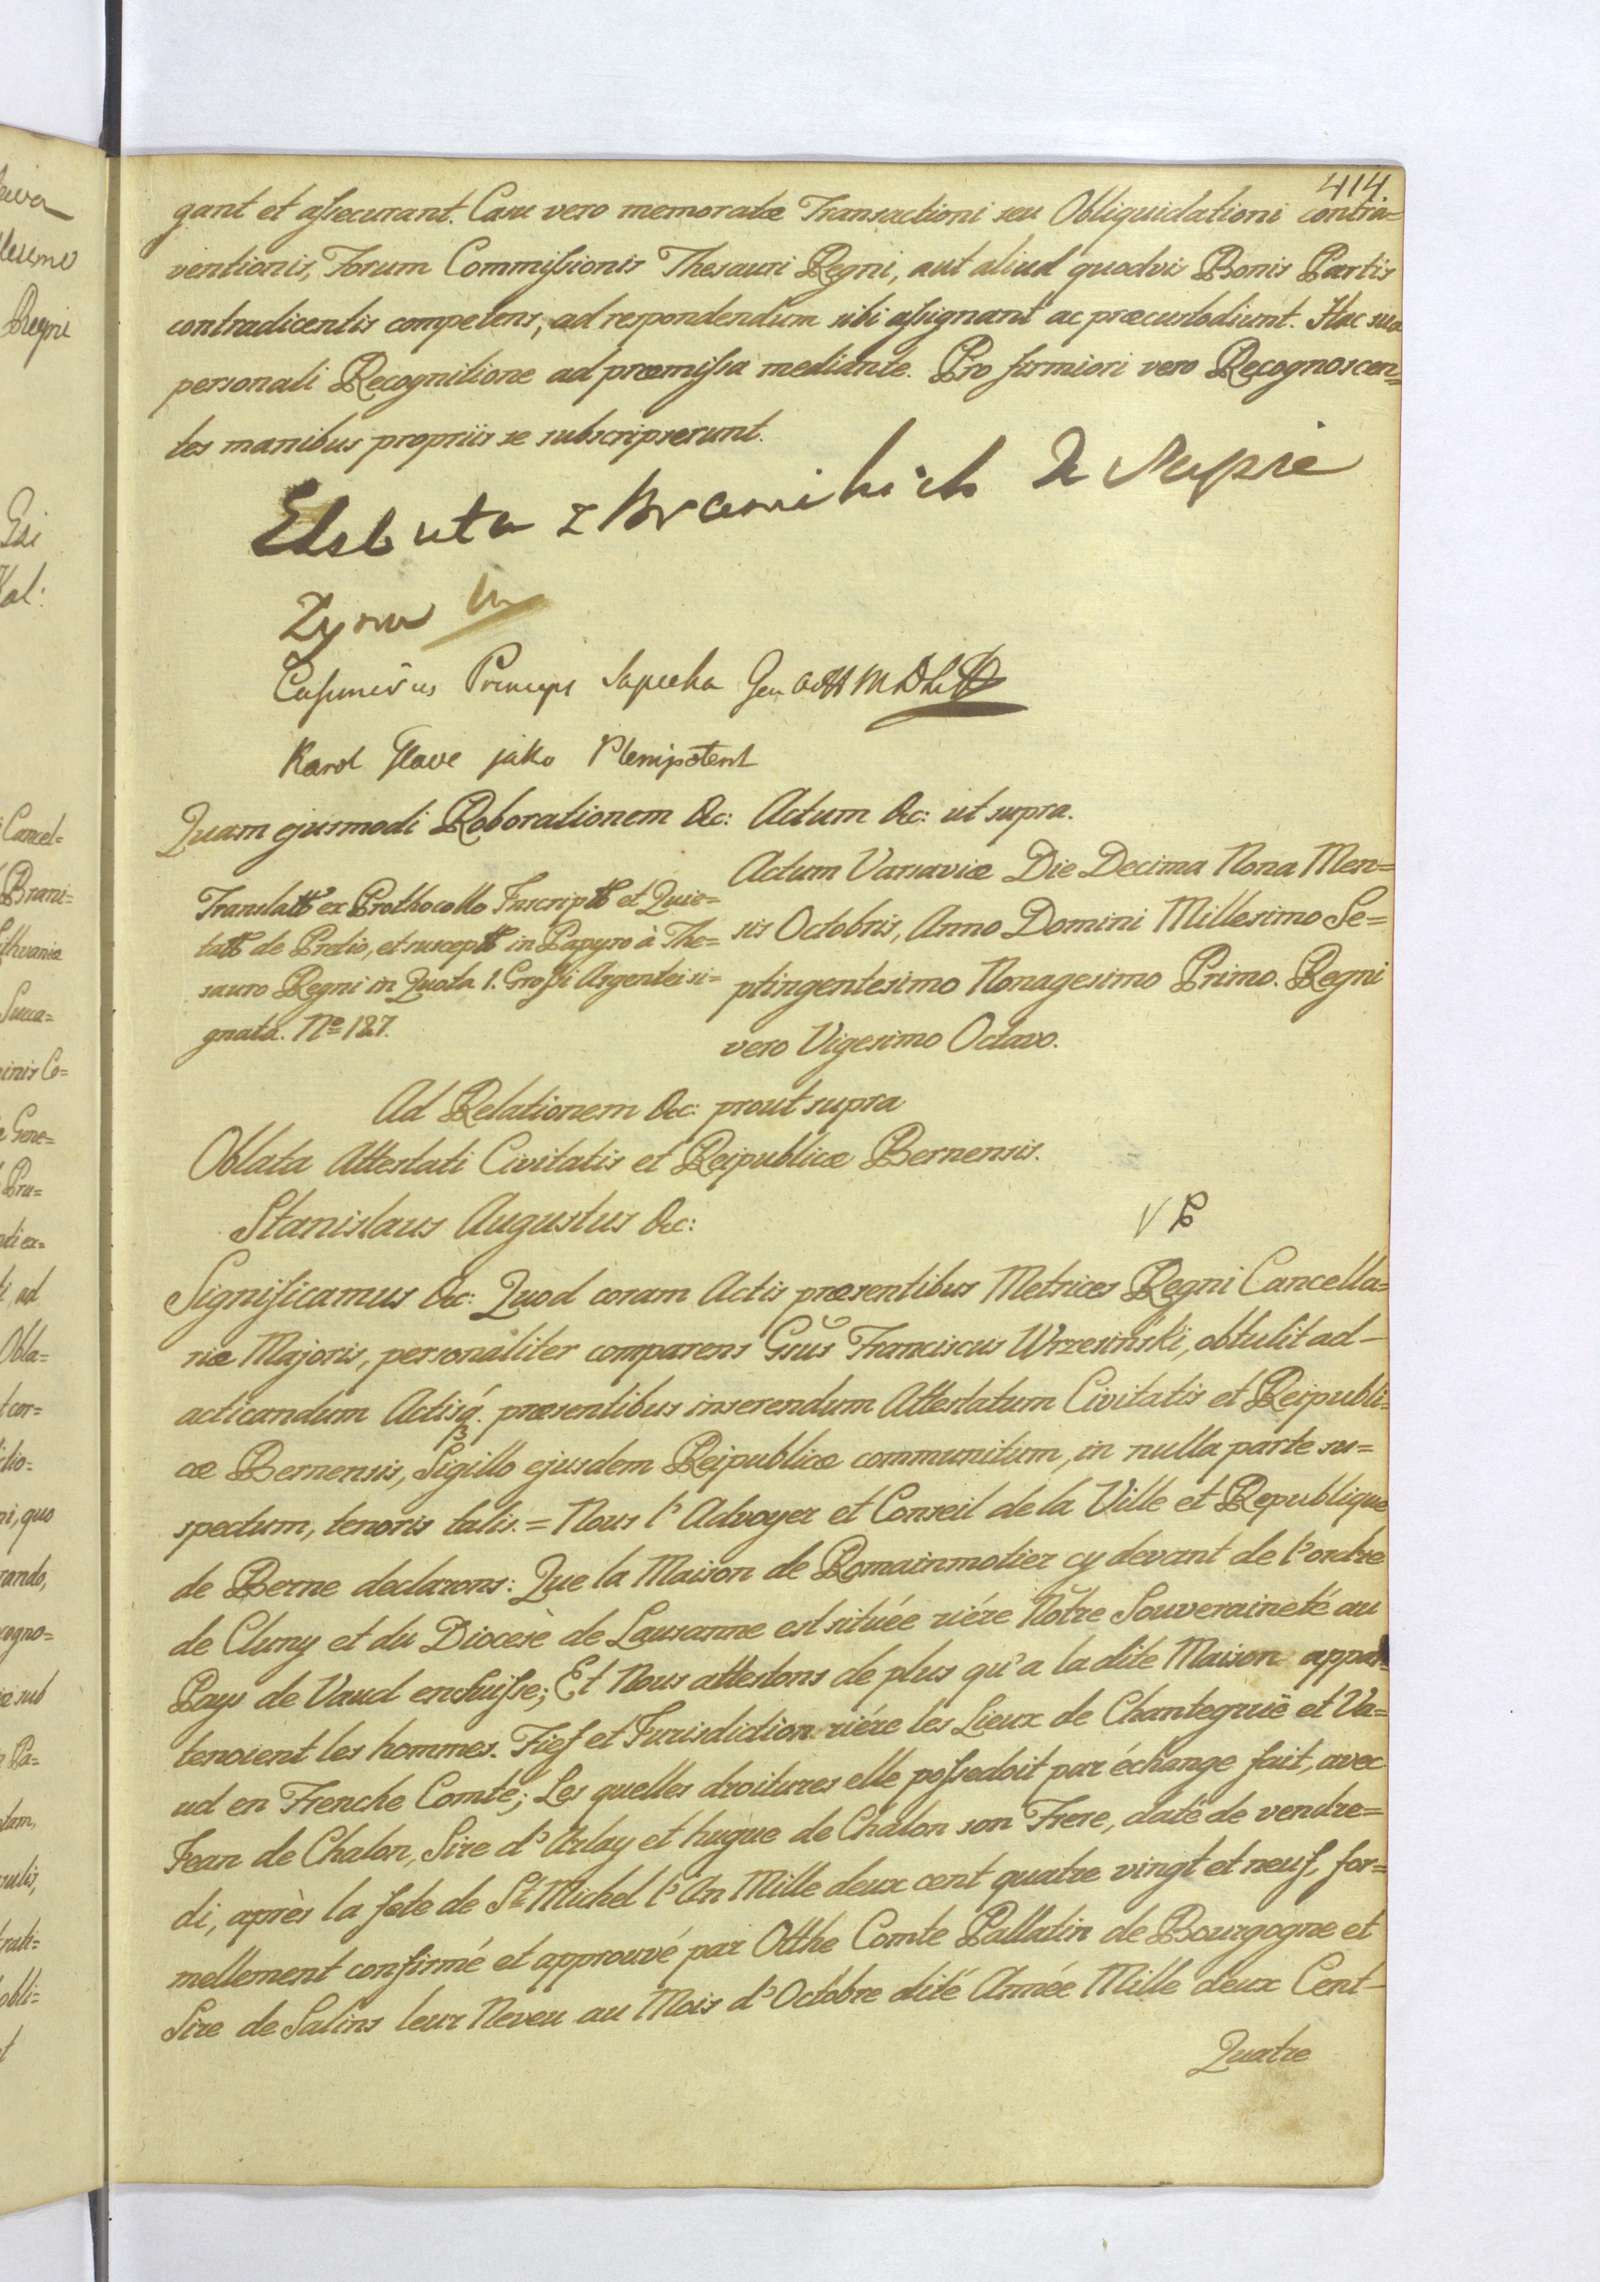 414
gant et aſsecurant. Casu vero memoratæ Transactioni seu Obliquidationi contra=
ventionis, Forum Commiſsionis Thesauri Regni, aut aliud quodvis Bonis Partis
contradicentis competens, ad respondendum sibi aſsignant ac præcustodiunt. Hac sua
personali Recognitione ad præmiſsa mediante. Pro firmiori vero Recognoscen=
tes manibus propriis se subscripserunt.
Elsbieta z Branikich
Casimirus Princeps Sapieha Gen
Karol Glave jako Plenipotent
Quam ejusmodi Roborationem &c: Actum &c: ut supra.
Translatt ex Prothocollo Inscriptt et Quie=
tatt de Predio, et susceptt in Papyro à The=
sauro Regni in Quota 1. Groſsi Argentei si=
gnata. No 127.
Actum Varsaviæ Die Decima Nona Men=
sis Octobris, Anno Domini Millesimo Se=
ptingentesimo Nonagesimo Primo. Regni
vero Vigesimo Octavo.
Ad Relationem &c: prout supra
Oblata Attestati Civitatis et Reipublicæ Bernensis.
Stanislaus Augustus &c:
Significamus &c: Quod coram Actis præsentibus Metrices Regni Cancella=
riæ Majoris, personaliter comparens Gsus Franciscus Wrzesinski, obtulit ad-
acticandum Actisq. præsentibus inserendum Attestatum Civitatis et Reipubli=
cæ Bernensis, Sigillo ejusdem Reipublicæ communitum, in nulla parte su=
spectum, tenoris talis. = Nous l'Advoyer et Conseil de la Ville et Republique
de Berne declarons: Que la Maison de Romainmotier cy devant de l'ordre
de Cluny et du Diocese de Lausanne est située riére Nôtre Souveraineté au
Pays de Vaud en Suiſse; Et Nous attestons de plus qu'a la dite Maison appar=
tenoient les hommes. Fief et Jurisdiction riére les Lieux de Chantegruë et Va=
ud en Frenche Comté; Les quelles droitures elle poſsedoit par échange fait, avec
Jean de Chalon, Sire d'Arlay et hugue de Chalon son Frere, daté de vendre=
di, après la fete de St Michel l'An Mille deux cent quatre vingt et neuf, for=
mellement confirmé et approuvé par Otthe Comte Pallatin de Bourgogne et
Sire de Salins leur Neveu au Mois d'Octobre dité Année Mille deux Cent-
Quatre